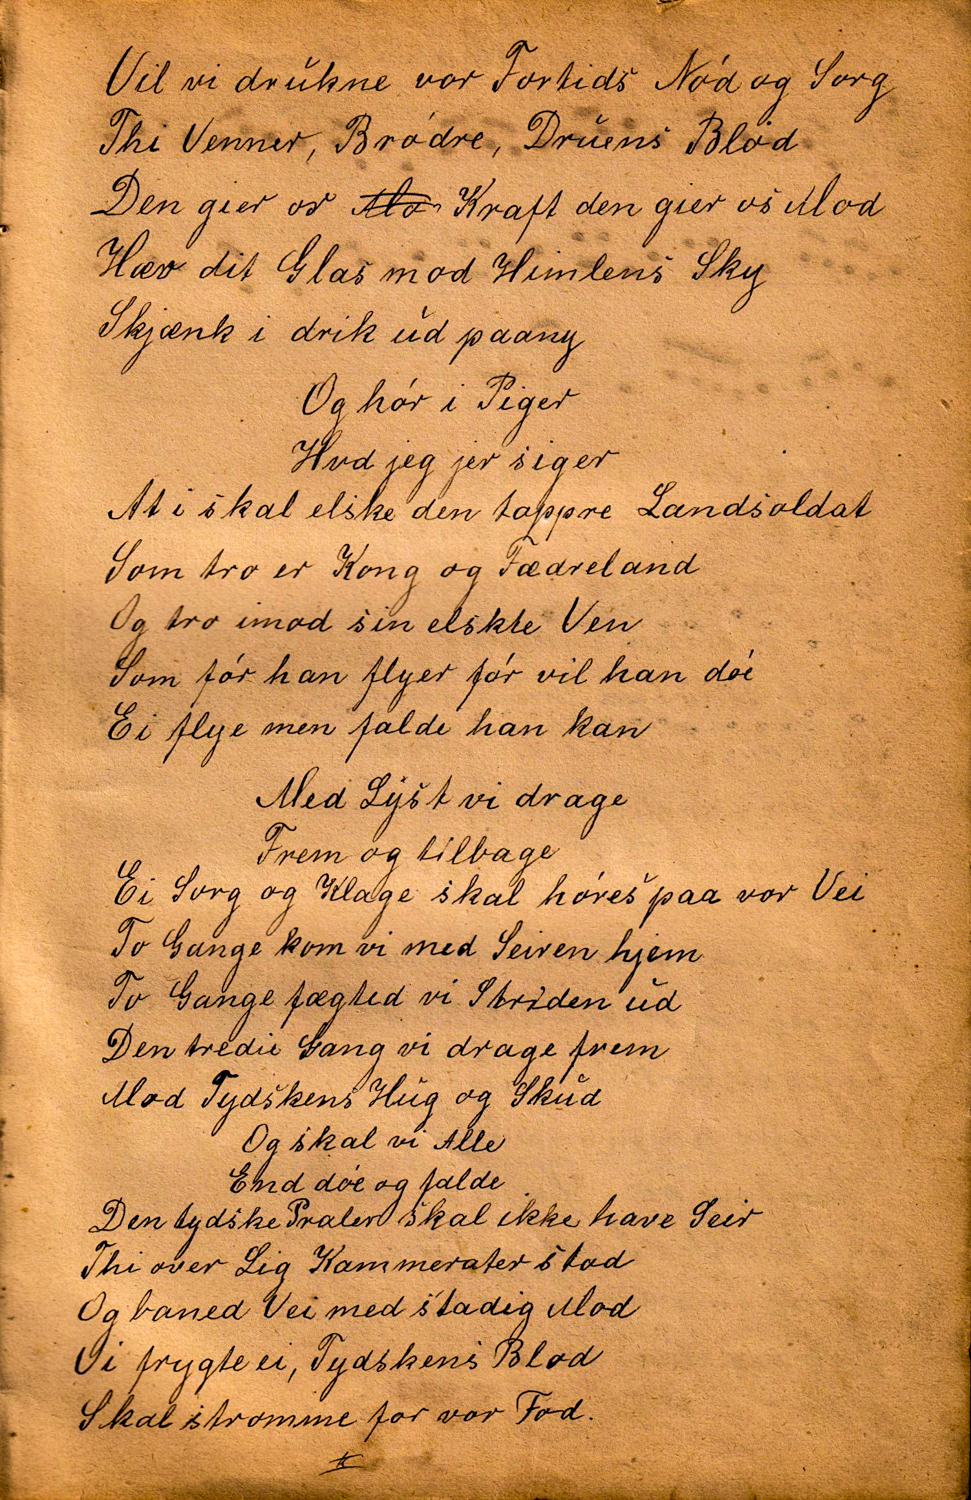 Vil vi drukne vor Fortids Nód og Sorg
Thi Venner, Bródre, Druens Blod
Den gier os Kraft den gier os Mod
Hæv dit Glas mod Himlens Sky
Skjænk i drik ud paany
Og hór i Piger
Hvd jeg jer siger
At i skal elske den tappre Landsoldat
Som tro er Kong og Fædreland
Og tro imod sin elskte Ven
Som fór han flyer fór vil han dóe
Ei flye men falde han kan
Med Lyst vi drage
Frem og tilbage
Ei Sorg og Klage skal hóres paa vor Vei
To Gange kom vi med Seiren hjem
To Gange fægted vi Striden ud
Den tredie Gang vi drage frem
Mod Tydskens Hug og Skud
Og skal vi Alle
End dóe og falde
Den tydske Praler skal ikke have Seir
Thi over Lig Kammerater stod
Og baned Vei med stadig Mod
Vi frygte ei, Tydskens Blod
Skal stromme for vor Fod.